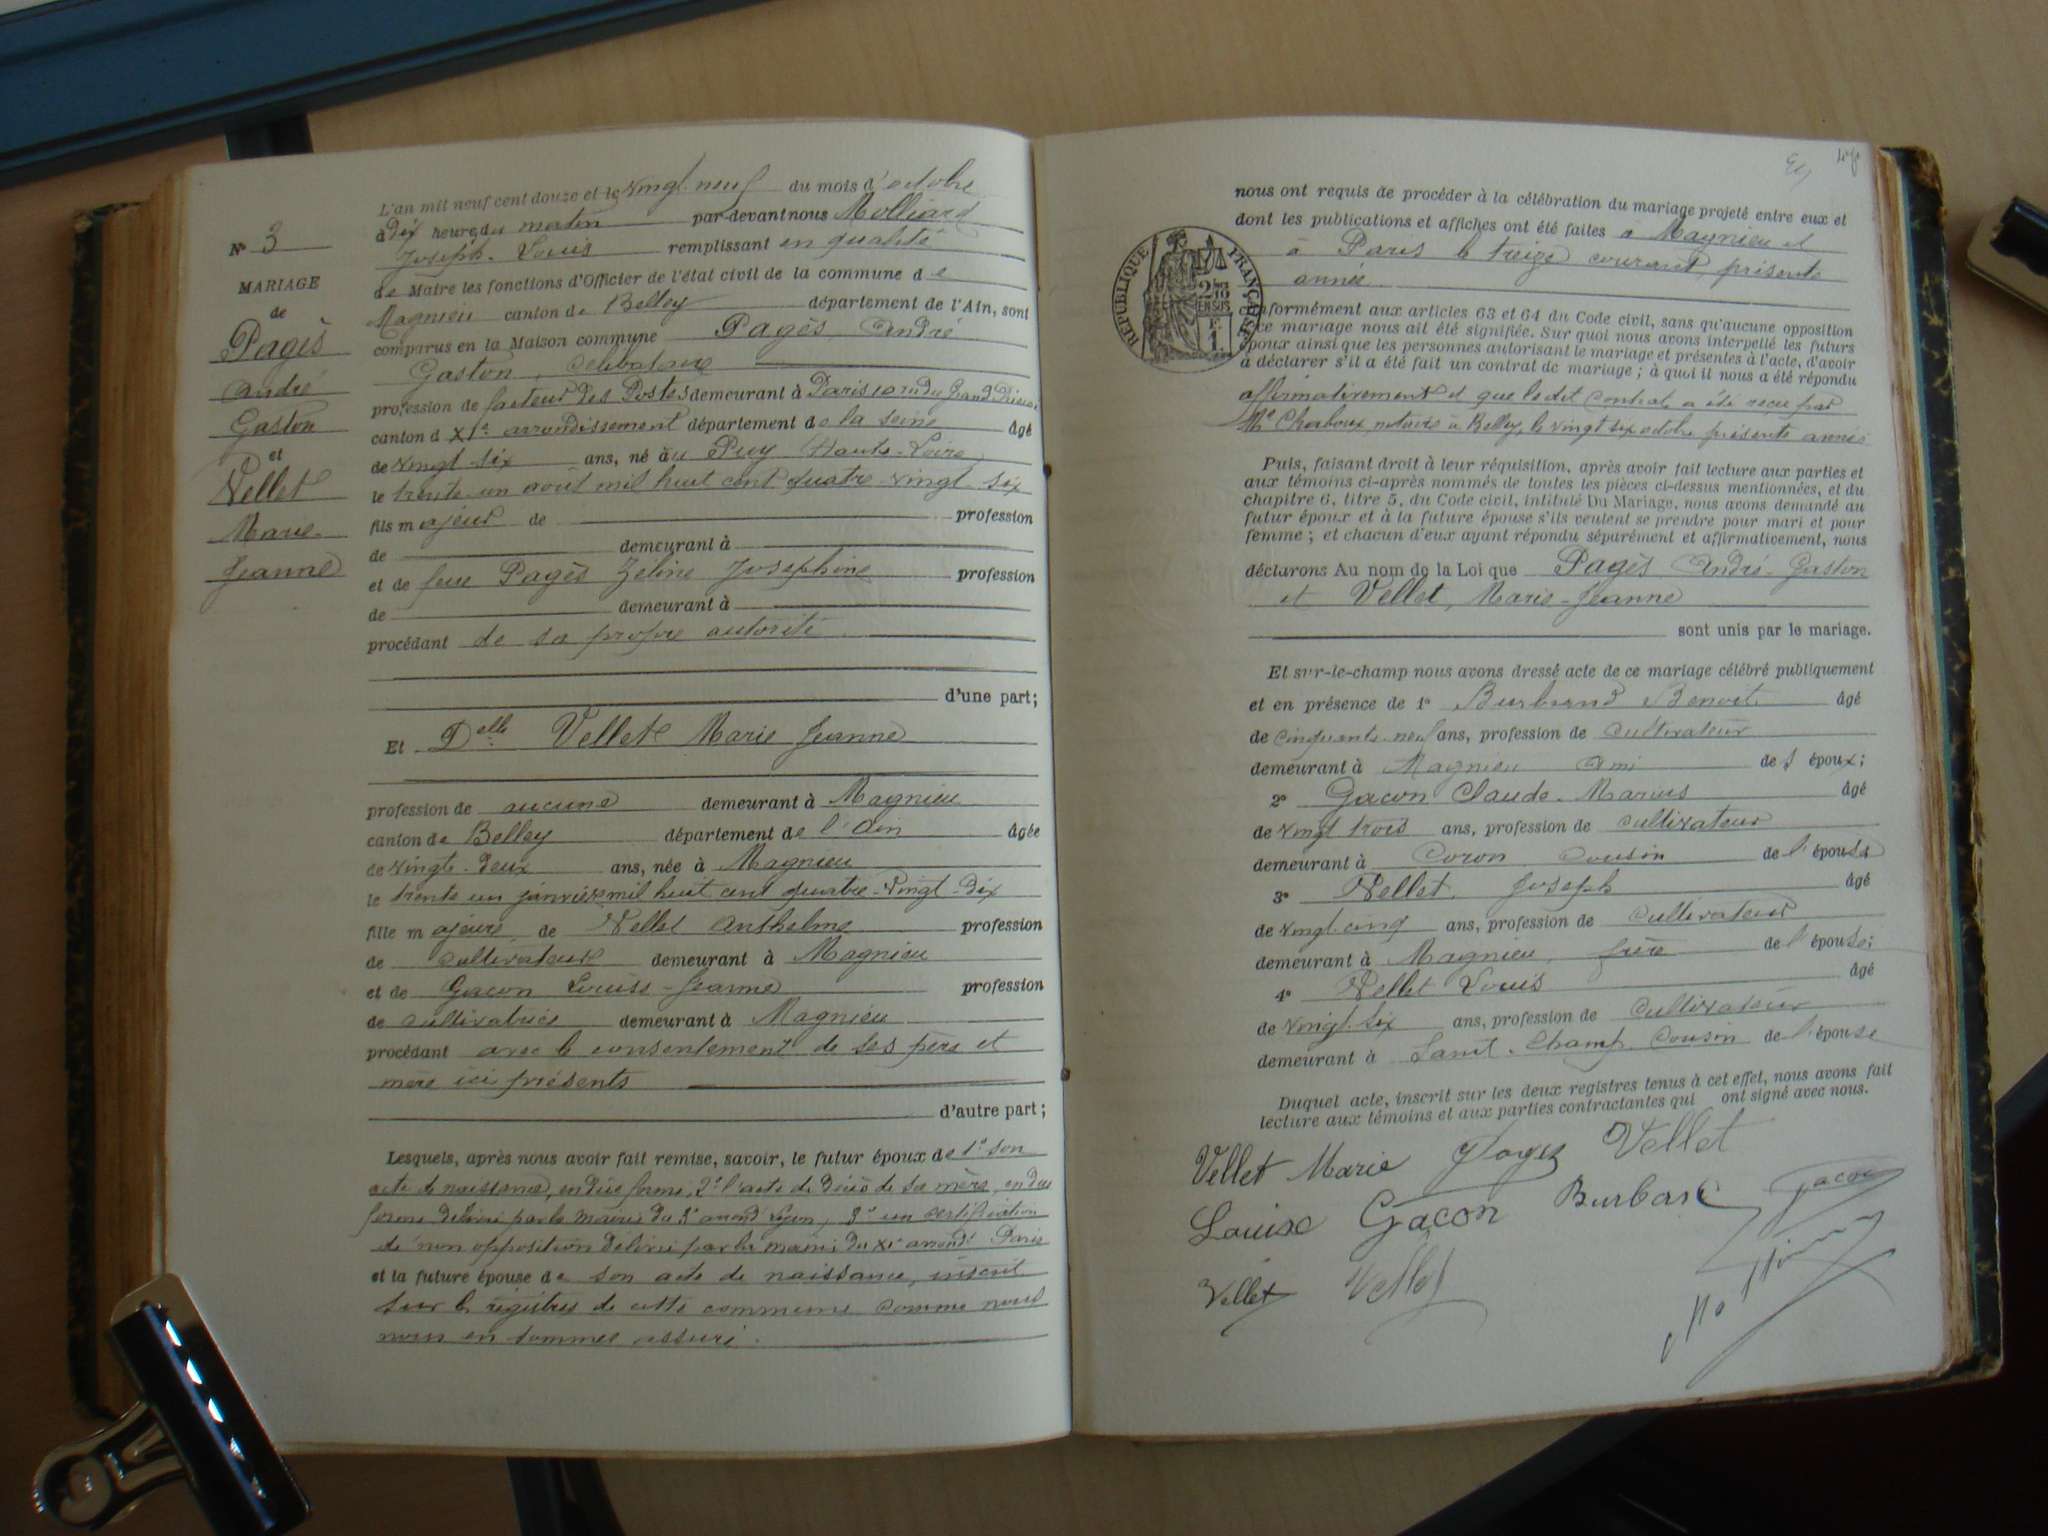 L'an mil neuf cent douze et le vingt neuf du mois d'octobre
à dix heures du matin par devant nous Molliard
Joseph-Louis remplissant en qualité
de Maire les fonctions d'Officier de l'état civil de la commune de
Magnieu canton de Belley département de l'Ain, sont
comparus en la Maison commune Pagès, André
Gaston, célibataire
profession de facteur des Postes demeurant à Paris 10 rue du Grand Prieuré
canton d XIe arrondissement département de la Seine âgé
de vingt six ans, né au Puy Haute-Loire
le trente un août mil huit cent quatre-vingt-six
fils majeur de profession
de demeurant à
et de feue Pagès Zeline Joséphine profession
de demeurant à
procédant de sa propre autorité
d'une part;
N° 3
MARIAGE
de
Pagès
André
Gaston
et
Vellet
Marie
Jeanne
Et Delle Vellet Marie Jeanne
profession de aucune demeurant à Magnieu
canton de Belley département de l'Ain âgée
de vingt-deux ans, née à Magnieu
le trente un janvier mil huit cent quatre-vingt-dix
fille majeure de Vellet Anthelme profession
de cultivateur demeurant à Magnieu
et de Gacon Louise-Jeanne profession
de cultivatrice demeurant à Magnieu
procédant avec le consentement de ses père et
mère ici présents
d'autre part;
Lesquels, après nous avoir fait remise, savoir, le futur époux de 1° son
acte de naissance, en due forme, 2° l'acte de décès de sa mère, en due
forme délivré par la mairie du 5e arrondt Lyon, 3° un certification
de non opposition délivré par la mairie du XIe arrondt Paris
et la future épouse de son acte de naissance, inscrit
sur les registres de cette commune comme nous
nous en sommes assuré.
nous ont requis de procéder à la célébration du mariage projeté entre eux et
dont les publications et affiches ont été faites à Magnieu et
à Paris le treize courant, présente
année
RÉPUBLIQUE FRANÇAISE
conformément aux articles 63 et 64 du Code civil, sans qu'aucune opposition
à ce mariage nous ait été signifiée. Sur quoi nous avons interpellé les futurs
époux ainsi que les personnes autorisant le mariage et présentes à l'acte, d'avoir
à déclarer s'il a été fait un contrat de mariage; à quoi il nous a été répondu
affirmativement et que ledit contrat a été reçu par
Me Cherboux, notaire à Belley, le vingt six octobre présente année
Puis, faisant droit à leur réquisition, après avoir fait lecture aux parties et
aux témoins ci-après nommés de toutes les pièces ci-dessus mentionnées, et du
chapitre 6, titre 5, du Code civil, intitulé Du Mariage, nous avons demandé au
futur époux et à la future épouse s'ils veulent se prendre pour mari et pour
femme; et chacun d'eux ayant répondu séparément et affirmativement, nous
déclarons Au nom de la Loi que Pagès André-Gaston
et Vellet, Marie-Jeanne
sont unis par le mariage.
Et sur-le-champ nous avons dressé acte de ce mariage célébré publiquement
et en présence de 1° Benoit âgé
de cinquante-neuf ans, profession de cultivateur
demeurant à Magnieu ami de s époux;
2° Gacon Claude-Marius âgé
de vingt trois ans, profession de cultivateur
demeurant à Coron cousin de l'épouse
3° Vellet, Joseph âgé
de vingt-cinq ans, profession de cultivateur
demeurant à Magnieu, frère de l'épouse;
4° Vellet Louis âgé
de vingt-six ans, profession de cultivateur
demeurant à Saint-Champ cousin de l'épouse
Duquel acte, inscrit sur les deux registres tenus à cet effet, nous avons fait
lecture aux témoins et aux parties contractantes qui ont signé avec nous.
Vellet Marie Pagès Vellet
Louise Gacon Gacon
Vellet Vellet